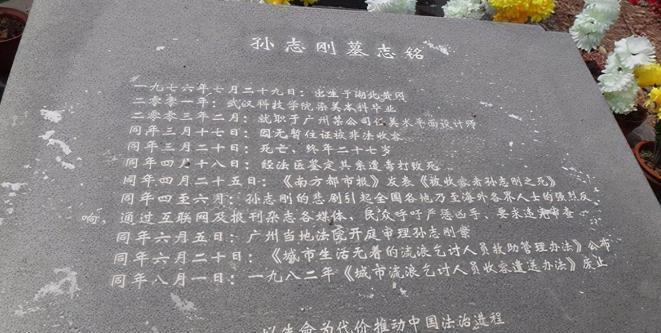 孙志刚墓志铭
一九七六年七月二十九日：出生于湖北黄冈
二零零一年：武汉科技学院染美本科毕业
二零零三年二月：就职于广州某公司任美术平面设计师
同年三月十七日：因无暂住证被非法收容
同年三月二十日：死亡，终年二十七岁
同年四月十八日：经法医鉴定其系遭毒打致死
同年四月二十五日：《南方都市报》发表《被收容者孙志刚之死》
同年四至六月：孙志刚的悲剧引起全国各地乃至海外各界人士的强烈反
响，通过互联网及报刊杂志各媒体，民众呼吁严惩凶手，要求违宪审查
同年六月五日：广州当地法院开庭审理孙志刚案
同年六月二十日：《城市生活无着的流浪乞讨人员救助管理办法》公布
同年八月一日：一九八二年《城市流浪乞讨人员收容遣送办法》废止
以生命为代价推动中国法治进程